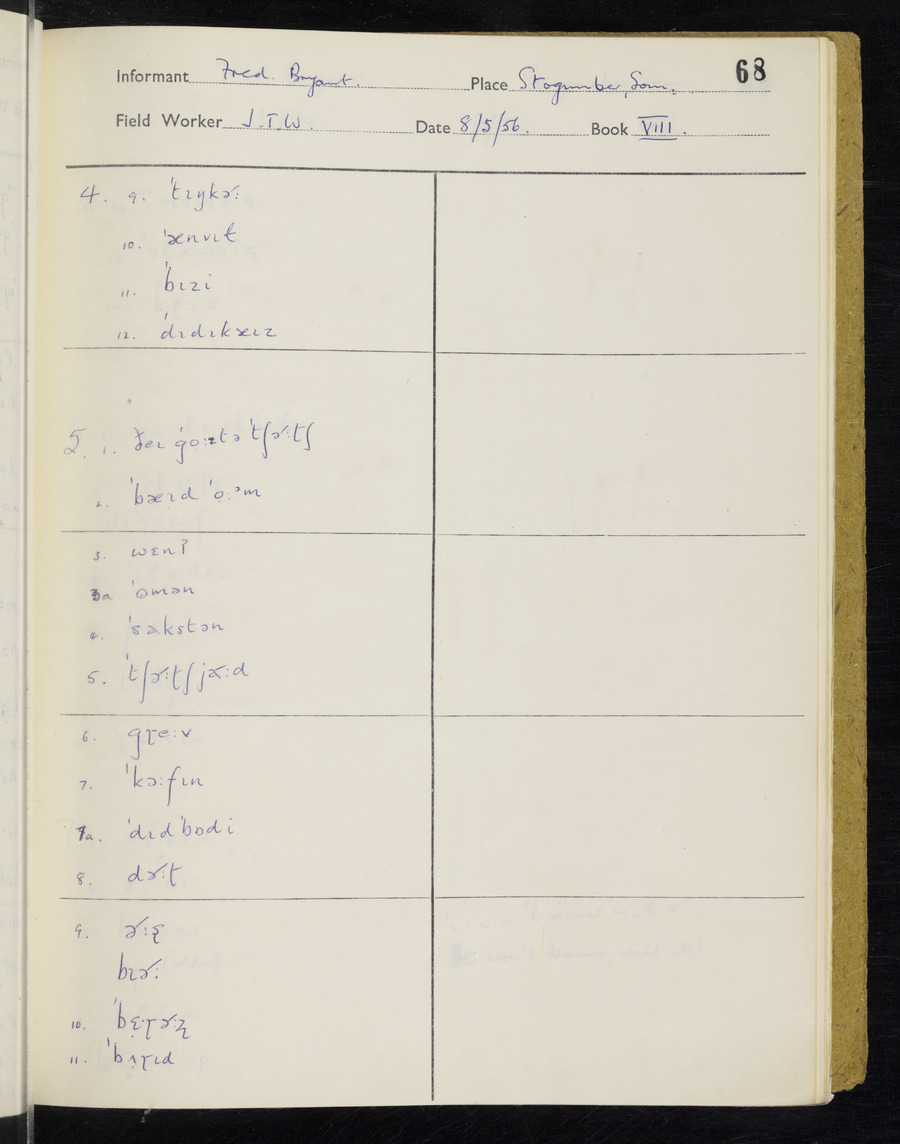 68
Informant Fred. Bryant. Place Stogumber, Som.
Field Worker J.T.W. Date 8/5/56. Book VIII.
4. 9. ˈtɪŋkɚː
10. ˈænvɪɫ
11. ˈbɪzi
12. ˈdɪdɪkæɪz
5. 1. ðeɪ ˈgoːz tə ˈtʃɚːtʃ
2. ˈbæɪd ˈọːᵊm
3. wɛn?
3a ˈomən
4. ˈsakstən
5. ˈtʃɚːtʃ jɚːd
6. gɽeːv
7. ˈkɔːfɪn
7a. ˈdɪd ˈbɒdi
8. dɚːʈ
9. ɚːʂ
bɪɚː
10. ˈbɛ̣ɽɚːʐ
11. ˈbɪ̣ɽɪd